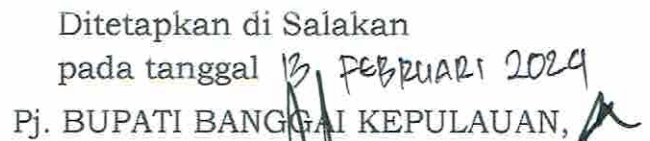 Ditetapkan di Salakan
pada tanggal 13 FEBRUARI 2024
Pj. BUPATI BANGGAI KEPULAUAN,